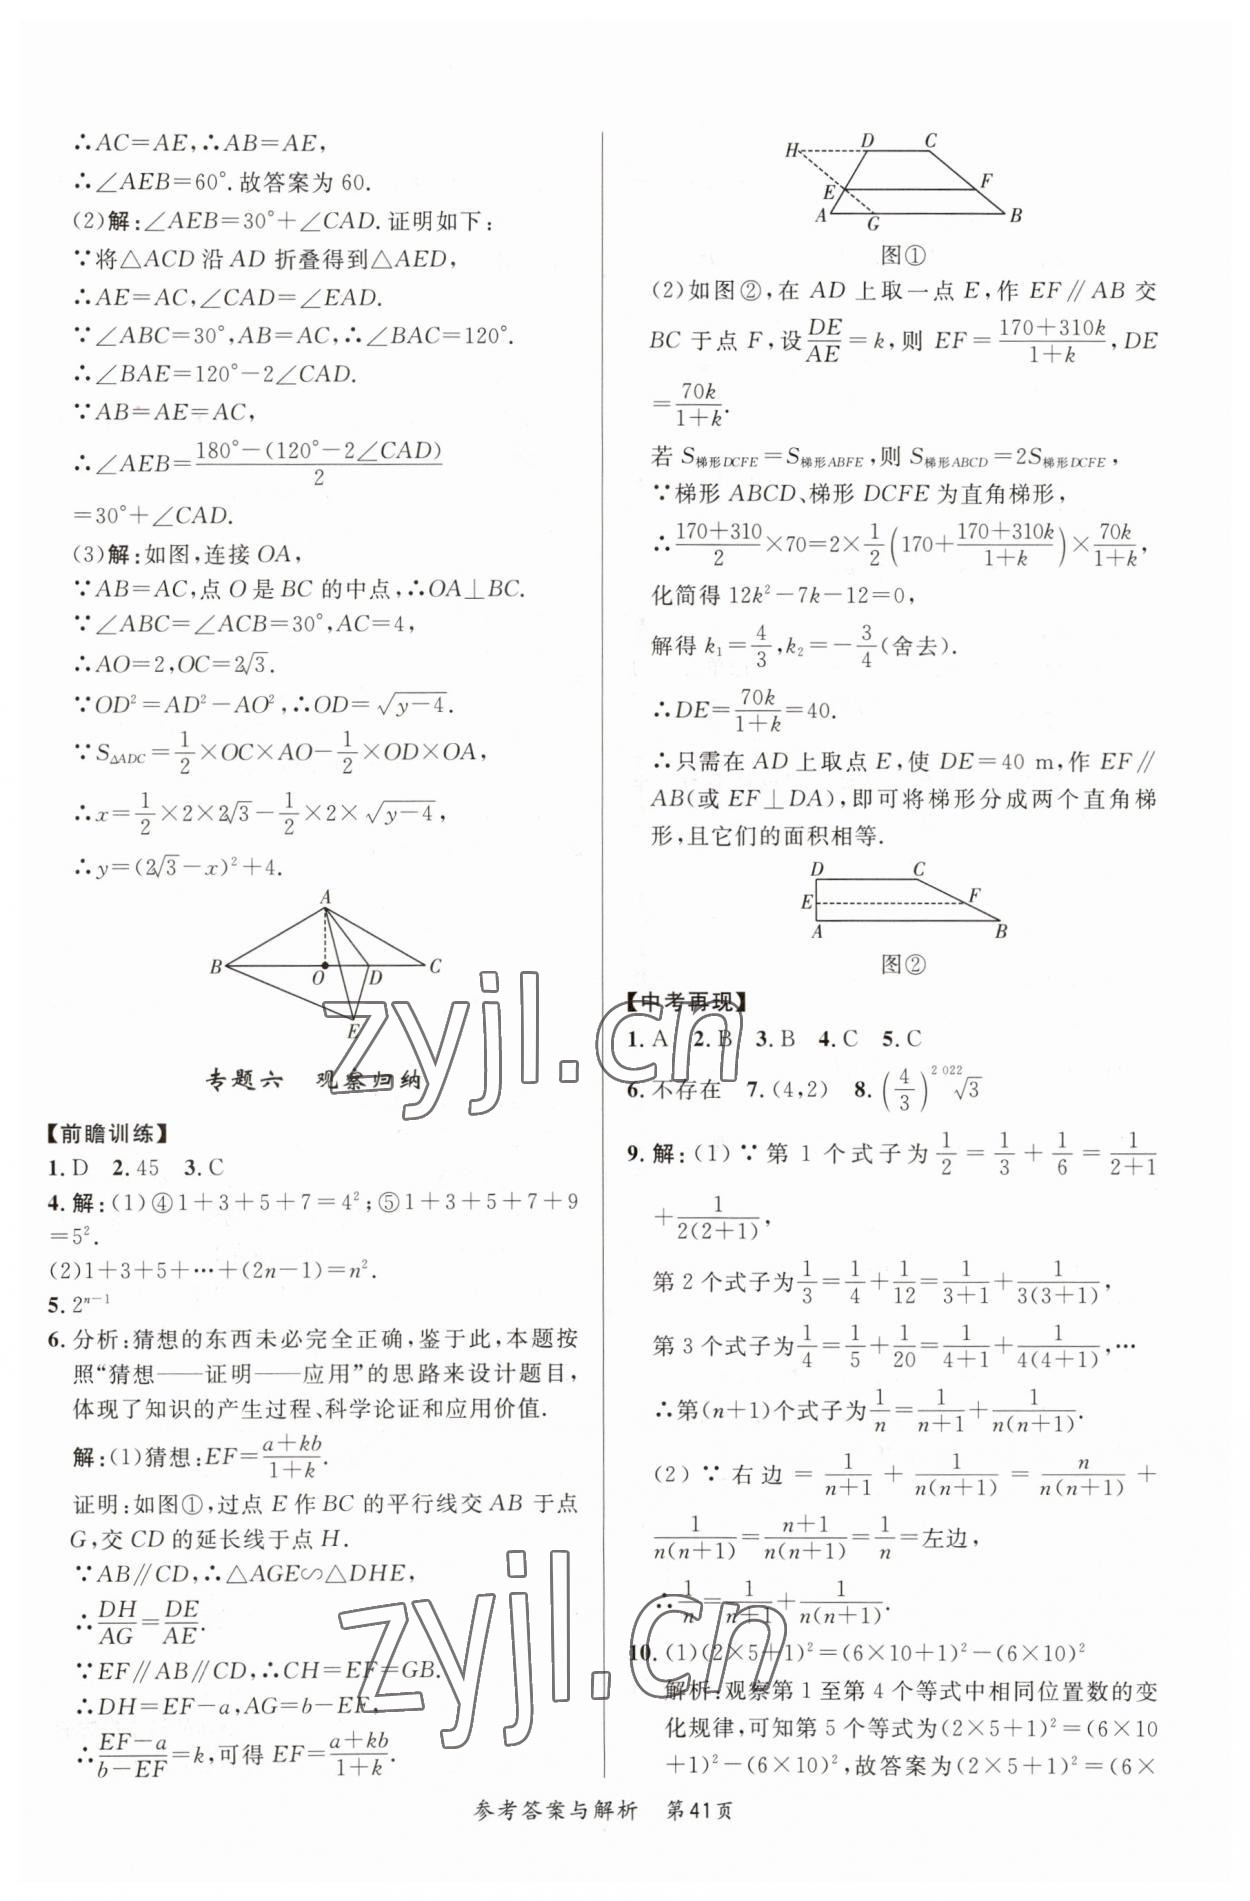 ∴AC=AE,∴AB=AE,
∴∠AEB=60°.故答案为60.
(2)解:∠AEB=30°+∠CAD.证明如下:
∵将△ACD沿AD折叠得到△AED,
∴AE=AC,∠CAD=∠EAD.
∵∠ABC=30°,AB=AC,∴∠BAC=120°.
∴∠BAE=120°-2∠CAD.
∵AB=AE=AC,
∴∠AEB=\frac{180°-(120°-2∠CAD)}{2}
=30°+∠CAD.
(3)解:如图,连接OA,
∵AB=AC,点O是BC的中点,∴OA⊥BC.
∵∠ABC=∠ACB=30°,AC=4,
∴AO=2,OC=2√3.
∵OD²=AD²-AO²,∴OD=\sqrt{y-4}.
∵S△ADC=\frac{1}{2}×OC×AO-\frac{1}{2}×OD×OA,
∴x=\frac{1}{2}×2×2√3-\frac{1}{2}×2×\sqrt{y-4},
∴y=(2√3-x)²+4.
A
B O D C
E
专题六 观察归纳
【前瞻训练】
1.D 2.45 3.C
4.解:(1)④1+3+5+7=4²;⑤1+3+5+7+9
=5².
(2)1+3+5+…+(2n-1)=n².
5.2^{n-1}
6.分析:猜想的东西未必完全正确,鉴于此,本题按
照“猜想——证明——应用”的思路来设计题目,
体现了知识的产生过程、科学论证和应用价值.
解:(1)猜想:EF=\frac{a+kb}{1+k}.
证明:如图①,过点E作BC的平行线交AB于点
G,交CD的延长线于点H.
∵AB∥CD,∴△AGE∽△DHE,
∴\frac{DH}{AG}=\frac{DE}{AE}.
∵EF∥AB∥CD,∴CH=EF=GB.
∴DH=EF-a,AG=b-EF,
∴\frac{EF-a}{b-EF}=k,可得EF=\frac{a+kb}{1+k}.
H D C
E F
A G B
图①
(2)如图②,在AD上取一点E,作EF∥AB交
BC于点F,设\frac{DE}{AE}=k,则EF=\frac{170+310k}{1+k},DE
=\frac{70k}{1+k}.
若S梯形DCFE=S梯形ABFE,则S梯形ABCD=2S梯形DCFE,
∵梯形ABCD、梯形DCFE为直角梯形,
∴\frac{170+310}{2}×70=2×\frac{1}{2}(170+\frac{170+310k}{1+k})×\frac{70k}{1+k},
化简得12k²-7k-12=0,
解得k₁=\frac{4}{3},k₂=-\frac{3}{4}(舍去).
∴DE=\frac{70k}{1+k}=40.
∴只需在AD上取点E,使DE=40 m,作EF∥
AB(或EF⊥DA),即可将梯形分成两个直角梯
形,且它们的面积相等.
D C
E F
A B
图②
【中考再现】
1.A 2.B 3.B 4.C 5.C
6.不存在 7.(4,2) 8.(\frac{4}{3})^{2 022}√3
9.解:(1)∵第1个式子为\frac{1}{2}=\frac{1}{3}+\frac{1}{6}=\frac{1}{2+1}
+\frac{1}{2(2+1)},
第2个式子为\frac{1}{3}=\frac{1}{4}+\frac{1}{12}=\frac{1}{3+1}+\frac{1}{3(3+1)},
第3个式子为\frac{1}{4}=\frac{1}{5}+\frac{1}{20}=\frac{1}{4+1}+\frac{1}{4(4+1)},…
∴第(n+1)个式子为\frac{1}{n}=\frac{1}{n+1}+\frac{1}{n(n+1)}.
(2)∵右边=\frac{1}{n+1}+\frac{1}{n(n+1)}=\frac{n}{n(n+1)}+
\frac{1}{n(n+1)}=\frac{n+1}{n(n+1)}=\frac{1}{n}=左边,
∴\frac{1}{n}=\frac{1}{n+1}+\frac{1}{n(n+1)}.
10.(1)(2×5+1)²=(6×10+1)²-(6×10)²
解析:观察第1至第4个等式中相同位置数的变
化规律,可知第5个等式为(2×5+1)²=(6×10
+1)²-(6×10)²,故答案为(2×5+1)²=(6×
参考答案与解析 第41页
zyjl.cn
zyjl.cn